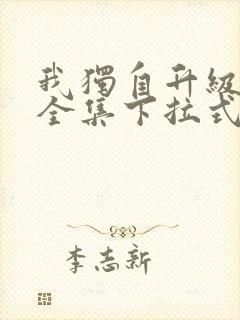 我獨自升級
全集下拉式
李志新